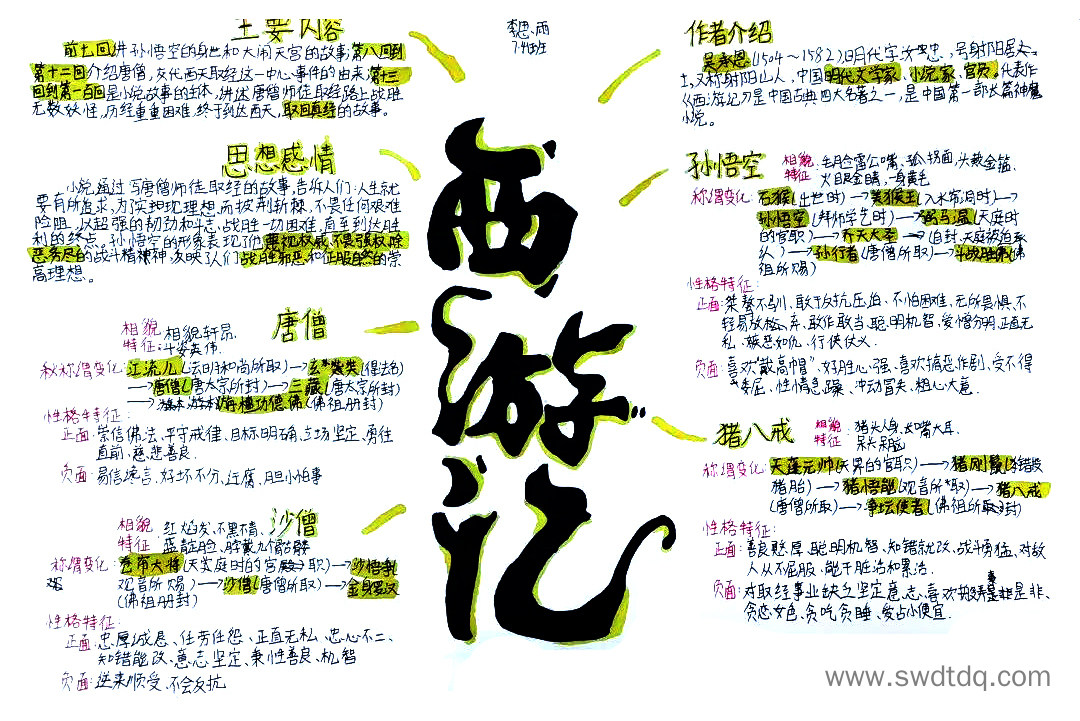 主要内容
前七回讲孙悟空的身世和大闹天宫的故事;第八回到
第十二回介绍唐僧,交代西天取经这一中心事件的由来;第十三
回到第一百回是小说故事的主体,讲述唐僧师徒取经路上战胜
无数妖怪,历经重重困难,终于到达西天,取回真经的故事。
思想感情
小说通过写唐僧师徒取经的故事,告诉人们:人生就
要有所追求,为实现理想,而披荆斩棘,不畏任何艰难
险阻,以超强的韧劲和斗志,战胜一切困难,直至到达胜
利的终点。孙悟空的形象表现了他蔑视权威、不畏强权、除
恶务尽的战斗精神,反映了人们战胜邪恶和征服自然的崇
高理想。
唐僧
相貌特征:相貌轩昂、
斗姿英伟。
称谓变化:江流儿(法明和尚所取)→玄奘(得法名)
→唐僧(唐太宗所封)→三藏(唐太宗所封)
→旃檀功德佛(佛祖册封)
性格特征:
正面:崇信佛法、严守戒律、目标明确、立场坚定、勇往
直前、慈悲善良.
负面:易信谗言、好坏不分、迂腐、胆小怕事
沙僧
相貌特征:红焰发、不黑不青、
蓝靛脸、脖戴九个骷髅
称谓变化:卷帘大将(天庭时的官职)→沙悟净
观音所赐)→沙僧(唐僧所取)→金身罗汉
(佛祖册封)
性格特征:
正面:忠厚诚恳、任劳任怨、正直无私、忠心不二、
知错能改、意志坚定、秉性善良、机智
负面:逆来顺受、不会反抗
西游记
李思雨
作者介绍
吴承恩(1504~1582)明代字汝忠,号射阳居士
士,又称射阳山人,中国明代文学家、小说家、官员,代表作
《西游记》是中国古典四大名著之一,是中国第一部长篇神魔
小说。
孙悟空
相貌特征:毛脸雷公嘴、孤拐面、头戴金箍、
火眼金睛、一身黄毛
称谓变化:石猴(出世时)→美猴王(入水帘洞时)→
孙悟空(拜师学艺时)→弼马温(天庭时
的官职)→齐天大圣→(自封,天庭被迫承
认)→孙行者(唐僧所取)→斗战胜佛(佛
祖所赐)
性格特征:
正面:桀骜不驯、敢于反抗压迫、不怕困难、无所畏惧、不
轻易放弃、敢作敢当、聪明机智、爱憎分明、正直无
私、嫉恶如仇、行侠仗义.
负面:喜欢"戴高帽"、好胜心强、喜欢搞恶作剧、受不得
委屈、性情急躁、冲动冒失、粗心大意.
猪八戒
相貌特征:猪头人身、长嘴大耳、
呆头呆脑
称谓变化:天蓬元帅(天界的官职)→猪刚鬣(错投
猪胎)→猪悟能(观音所取)→猪八戒
(唐僧所取)→净坛使者(佛祖所封)
性格特征:
正面:善良憨厚、聪明机智、知错就改、战斗勇猛、对敌
人从不屈服、能干脏活和累活.
负面:对取经事业缺乏坚定意志、喜欢搬弄是非、
贪恋女色、贪吃贪睡、爱占小便宜.
www.swdtdq.com